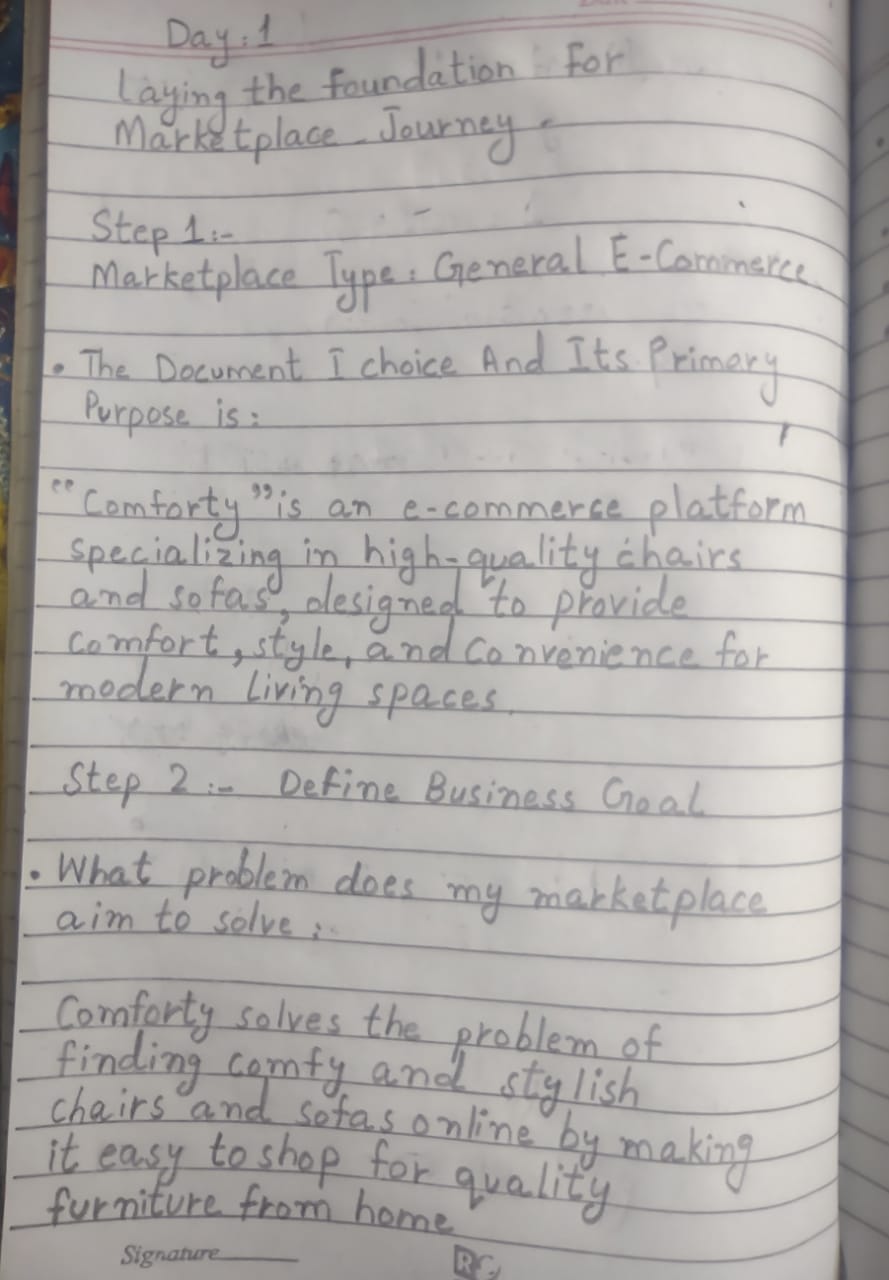 Day:1
Laying the foundation for
Marketplace Journey.
Step 1:-
Marketplace Type: General E-Commerce
• The Document I choice And Its Primary
Purpose is:
"Comforty" is an e-commerce platform
specializing in high-quality chairs
and sofas, designed to provide
comfort, style, and convenience for
modern living spaces.
Step 2:- Define Business Goal
• What problem does my marketplace
aim to solve:
Comforty solves the problem of
finding comfy and stylish
chairs and sofas online by making
it easy to shop for quality
furniture from home
Signature